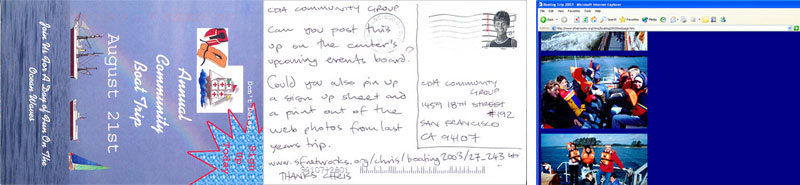 Join Us For A Day of Fun On The
Ocean Waves
August 21st
Annual
Community
Boat Trip
Don't Delay
Sign
Up
Today
CDA COMMUNITY GROUP
Can you post this
up on the center's
upcoming events board?
Could you also pin up
a sign up sheet and
a print out of the
web photos from last
years trip.
www.sfnetworks.org/chris/boating2003/27_243
THANKS CHRIS
CDA COMMUNITY
GROUP
1459 18TH STREET
#192
SAN FRANCISCO
CA 94107
Boating Trip 2003 - Microsoft Internet Explorer
File Edit View Favorites Tools Help
Back
Search
Favorites
Media
Address